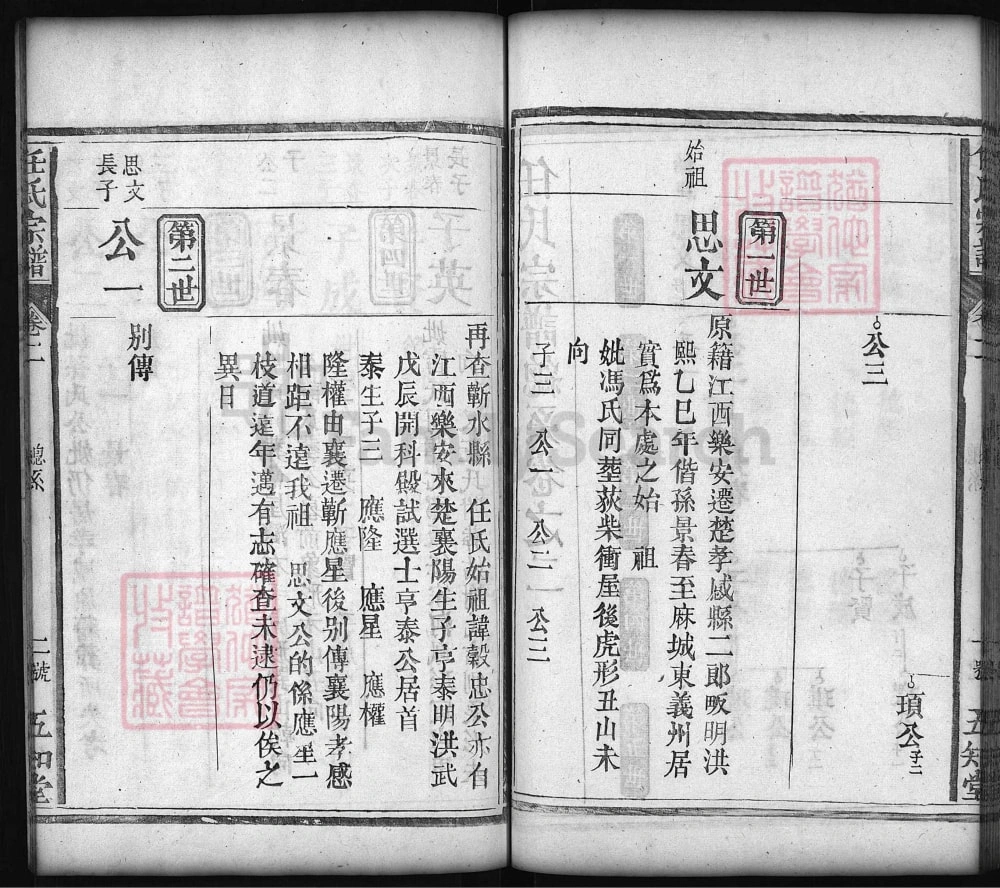 公三
項公子二
第一世
始祖
思文
原籍江西樂安遷楚孝感縣二郎畈明洪
熙乙巳年偕孫景春至麻城東義州居
實爲本處之始 祖
妣馮氏同塟荻柴衝屋後虎形丑山未
向
子三 公一 公二 公三
五知堂
再查蘄水縣 任氏始祖諱榖忠公亦自
江西樂安來楚襄陽生子亨泰明洪武
戊辰開科殿試選士亨泰公居首
泰生子三 應隆 應星 應權
隆權由襄遷蘄應星後別傳襄陽孝感
相距不遠我祖 思文公的係應星一
枝道遠年邁有志確查未逮仍以俟之
異日
第二世
思文
長子
公一
別傳
任氏宗譜
卷二
總系
二號
五知堂